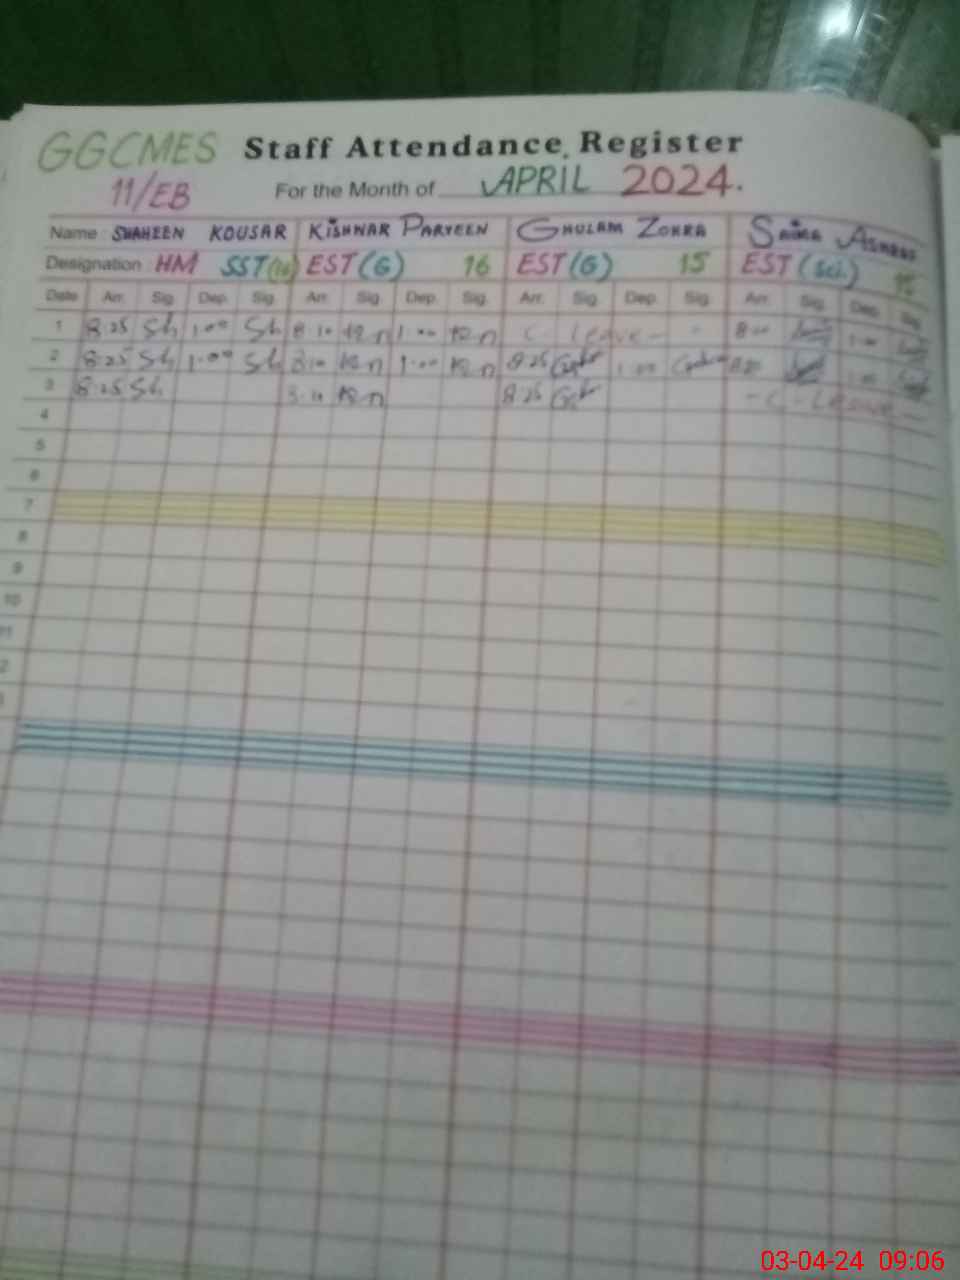 GGCMES Staff Attendance Register
11/EB For the Month of APRIL 2024.
Name : SHAHEEN KOUSAR KISHWAR PARVEEN GHULAM ZOHRA SAIMA
Designation : HM SST EST(G) 16 EST(G) 15 EST (Sci.)
Date Arr. Sig. Dep. Sig. Arr. Sig. Dep. Sig. Arr. Sig. Dep. Sig. Arr. Sig. Dep. Sig.
1 8:25 Sh 1:00 Sh 8:10 1:00 C. Leave 1:00
2 8:25 Sh 1:00 Sh 8:10 1:00 8:25 1:00 1:00
3 8:25 Sh 8:10 8:25 - C - Leave -
4
5
6
7
8
9
10
11
2
03-04-24 09:06